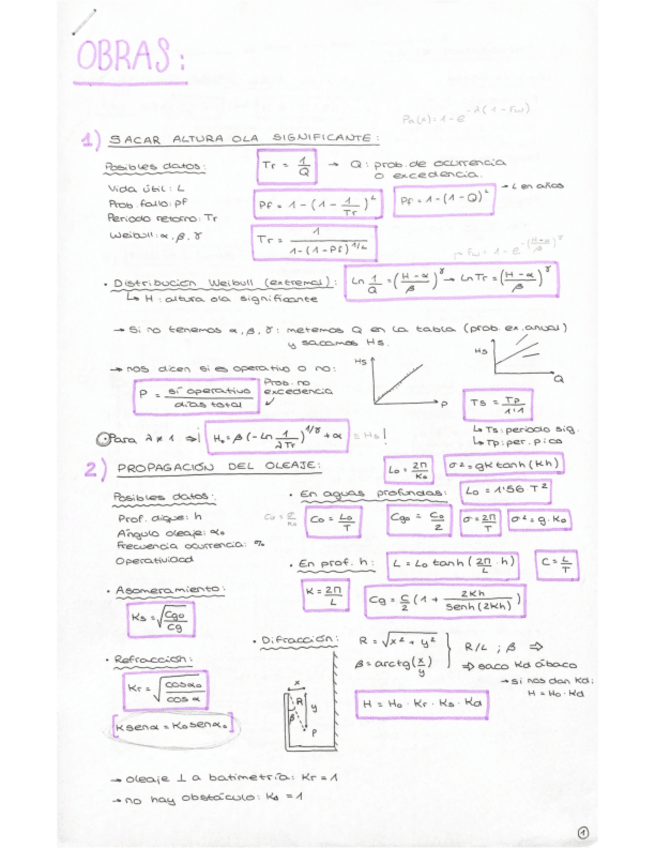 OBRAS:
Pa(x) = 1 - e^-λ(1-Fw)
1) SACAR ALTURA OLA SIGNIFICANTE:
Posibles datos:
Vida útil: L
Prob. fallo: Pf
Periodo retorno: Tr
Weibull: α, β, γ
Tr = 1/Q → Q: prob. de ocurrencia
o excedencia.
Pf = 1 - (1 - 1/Tr)^L
Pf = 1 - (1 - Q)^L → L en años
Tr = 1/(1 - (1 - Pf)^1/L)
→ Fw = 1 - e^-((H-α)/β)^γ
• Distribución Weibull (extremos):
↳ H: altura ola significante
Ln 1/Q = ((H - α)/β)^γ → Ln Tr = ((H - α)/β)^γ
→ Si no tenemos α, β, γ: metemos Q en la tabla (prob. ex. anual)
y sacamos Hs.
→ nos dicen si es operativo o no:
P = sí operativo/días total
Prob. no
excedencia
Hs
P
Hs
Q
Ts = Tp/1'1
↳ Ts: periodo sig.
↳ Tp: per. pico
Para λ ≠ 1 ⇒ H0 = β(-Ln 1/(λTr))^1/γ + α = Hs!
2) PROPAGACIÓN DEL OLEAJE:
L0 = 2π/K0
σ² = gk tanh(kh)
Posibles datos:
Prof. dique: h
Ángulo oleaje: α0
Frecuencia ocurrencia: %
Operatividad
• En aguas profundas:
L0 = 1'56 T²
C0 = L0/T
Cg0 = C0/2
σ = 2π/T
σ² = g·K0
• En prof. h:
L = L0 tanh(2π/L · h)
C = L/T
K = 2π/L
Cg = C/2 (1 + 2Kh/Senh(2Kh))
• Asomeramiento:
Ks = √(Cg0/Cg)
• Refracción:
Kr = √(cosα0/cosα)
[K senα = K0 senα0]
• Difracción:
x
R
y
β
P
R = √(x² + y²)
β = arctg(x/y)
R/L ; β ⇒
⇒ saco Kd ábaco
→ Si nos dan Kd:
H = H0 · Kd
H = H0 · Kr · Ks · Kd
→ oleaje ⊥ a batimetría: Kr = 1
→ no hay obstáculo: Kd = 1
1